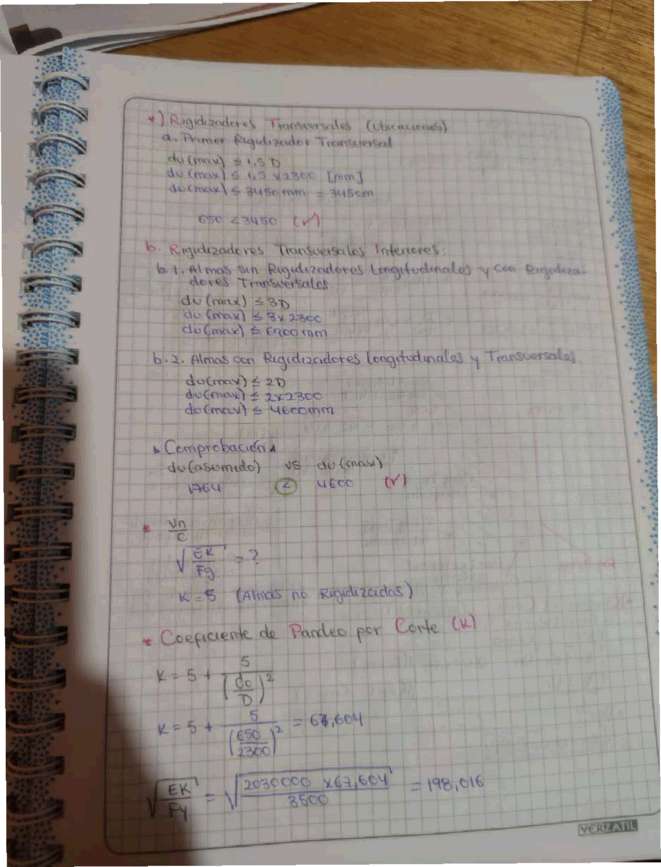 *) Rigidizadores Transversales (Ubicaciones)
a. Primer Rigidizador Transversal
do(max) ≤ 1,5 D
do(max) ≤ 1,5 x 2300 [mm]
do(max) ≤ 3450 mm = 345cm
650 < 3450 (✓)
b. Rigidizadores Transversales Interiores:
b.1. Almas sin Rigidizadores Longitudinales y con Rigidiza-
dores Transversales
do(max) ≤ 3D
do(max) ≤ 3x2300
do(max) ≤ 6900 mm
b.2. Almas con Rigidizadores Longitudinales y Transversales
do(max) ≤ 2D
do(max) ≤ 2x2300
do(max) ≤ 4600mm
Comprobación
do(asumido) vs do(max)
1764 < 4600 (✓)
* Vn/C
√(EK/Fy) = ?
K = 5 (Almas no Rigidizadas)
* Coeficiente de Pandeo por Corte (K)
K = 5 + 5/(do/D)²
K = 5 + 5/(650/2300)² = 67,604
√(EK/Fy) = √(2030000 x 67,604/3500) = 198,016
VERZATIL